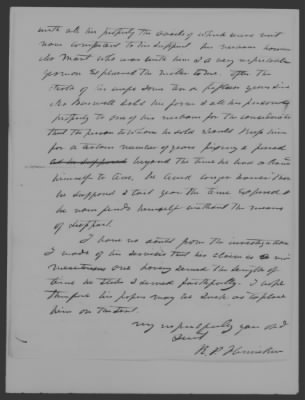 with all his property the wreck of which were not
now competent to his support his nephew however
Mr Mart who was with him & a very respectable
person explained the matter to me. After the
death of his wife some ten or fifteen years since
Mr Boswell sold his farm & all his personal
property to one of his nephews for the consideration
that the person to whom he sold should keep him
for a certain number of years fixing a period
beyond the time he had a chance
himself to live. he lived longer however than
he supposed & last year the time expired &
he now finds himself without the means
of support.
I have no doubt from the investigation
I made of his services that his claim is a
meritorious one having served the length of
time he states & served faithfully. I hope
therefore his papers may be such as to place
him on the list.
very respectfully your obt
Servt
B. P.